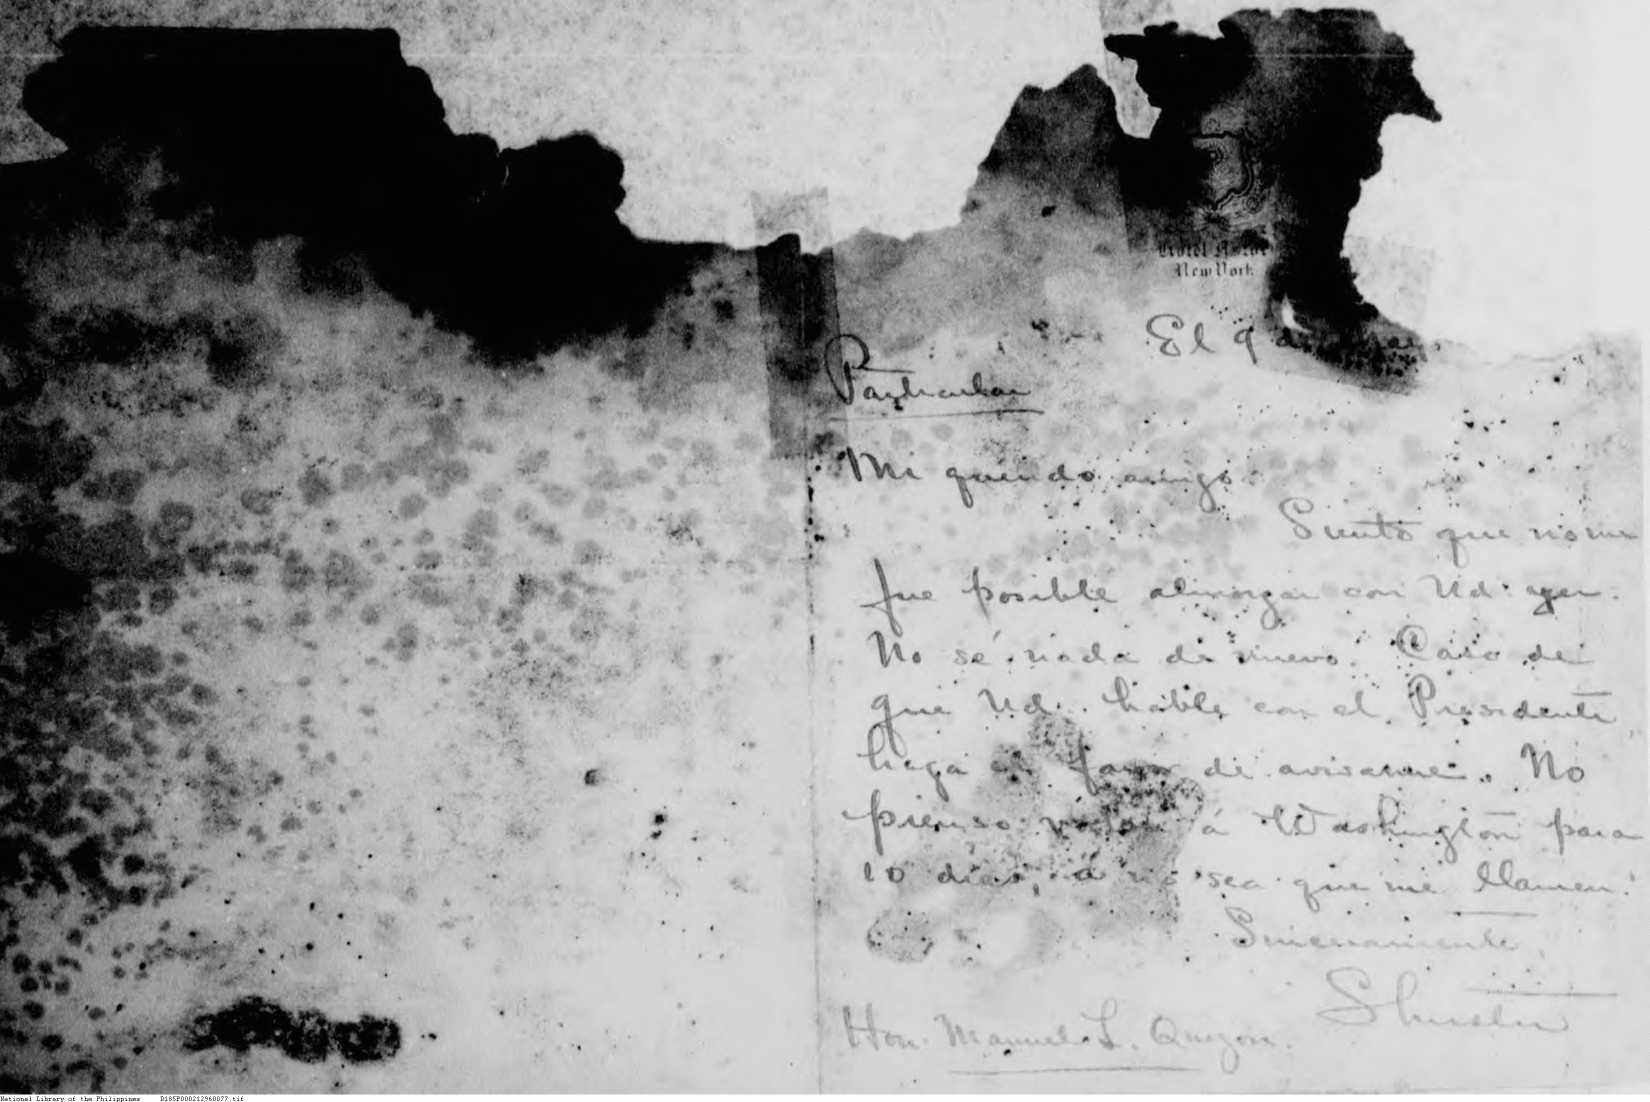 Hotel Astor
New York
El 9 de
Particular
Mi querido amigo
Siento que no me
fue posible almorzar con Ud. ayer.
No sé nada de nuevo. Caso de
que Ud. hable con el Presidente
haga el favor de avisarme. No
pienso á Washington para
10 dias, á no sea que me llamen.
Sinceramente
Shuster
Hon. Manuel L. Quezon.
National Library of the Philippines D185P000212960077.tif